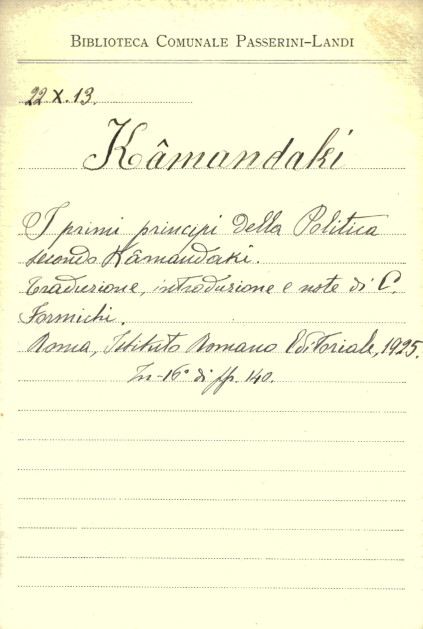 BIBLIOTECA COMUNALE PASSERINI-LANDI
22 X. 13.
Kâmandaki
I primi principi della Politica
secondo Kâmandaki.
Traduzione, introduzione e note di C.
Formichi.
Roma, Istituto Romano Editoriale, 1925.
In-16° di pp. 140.